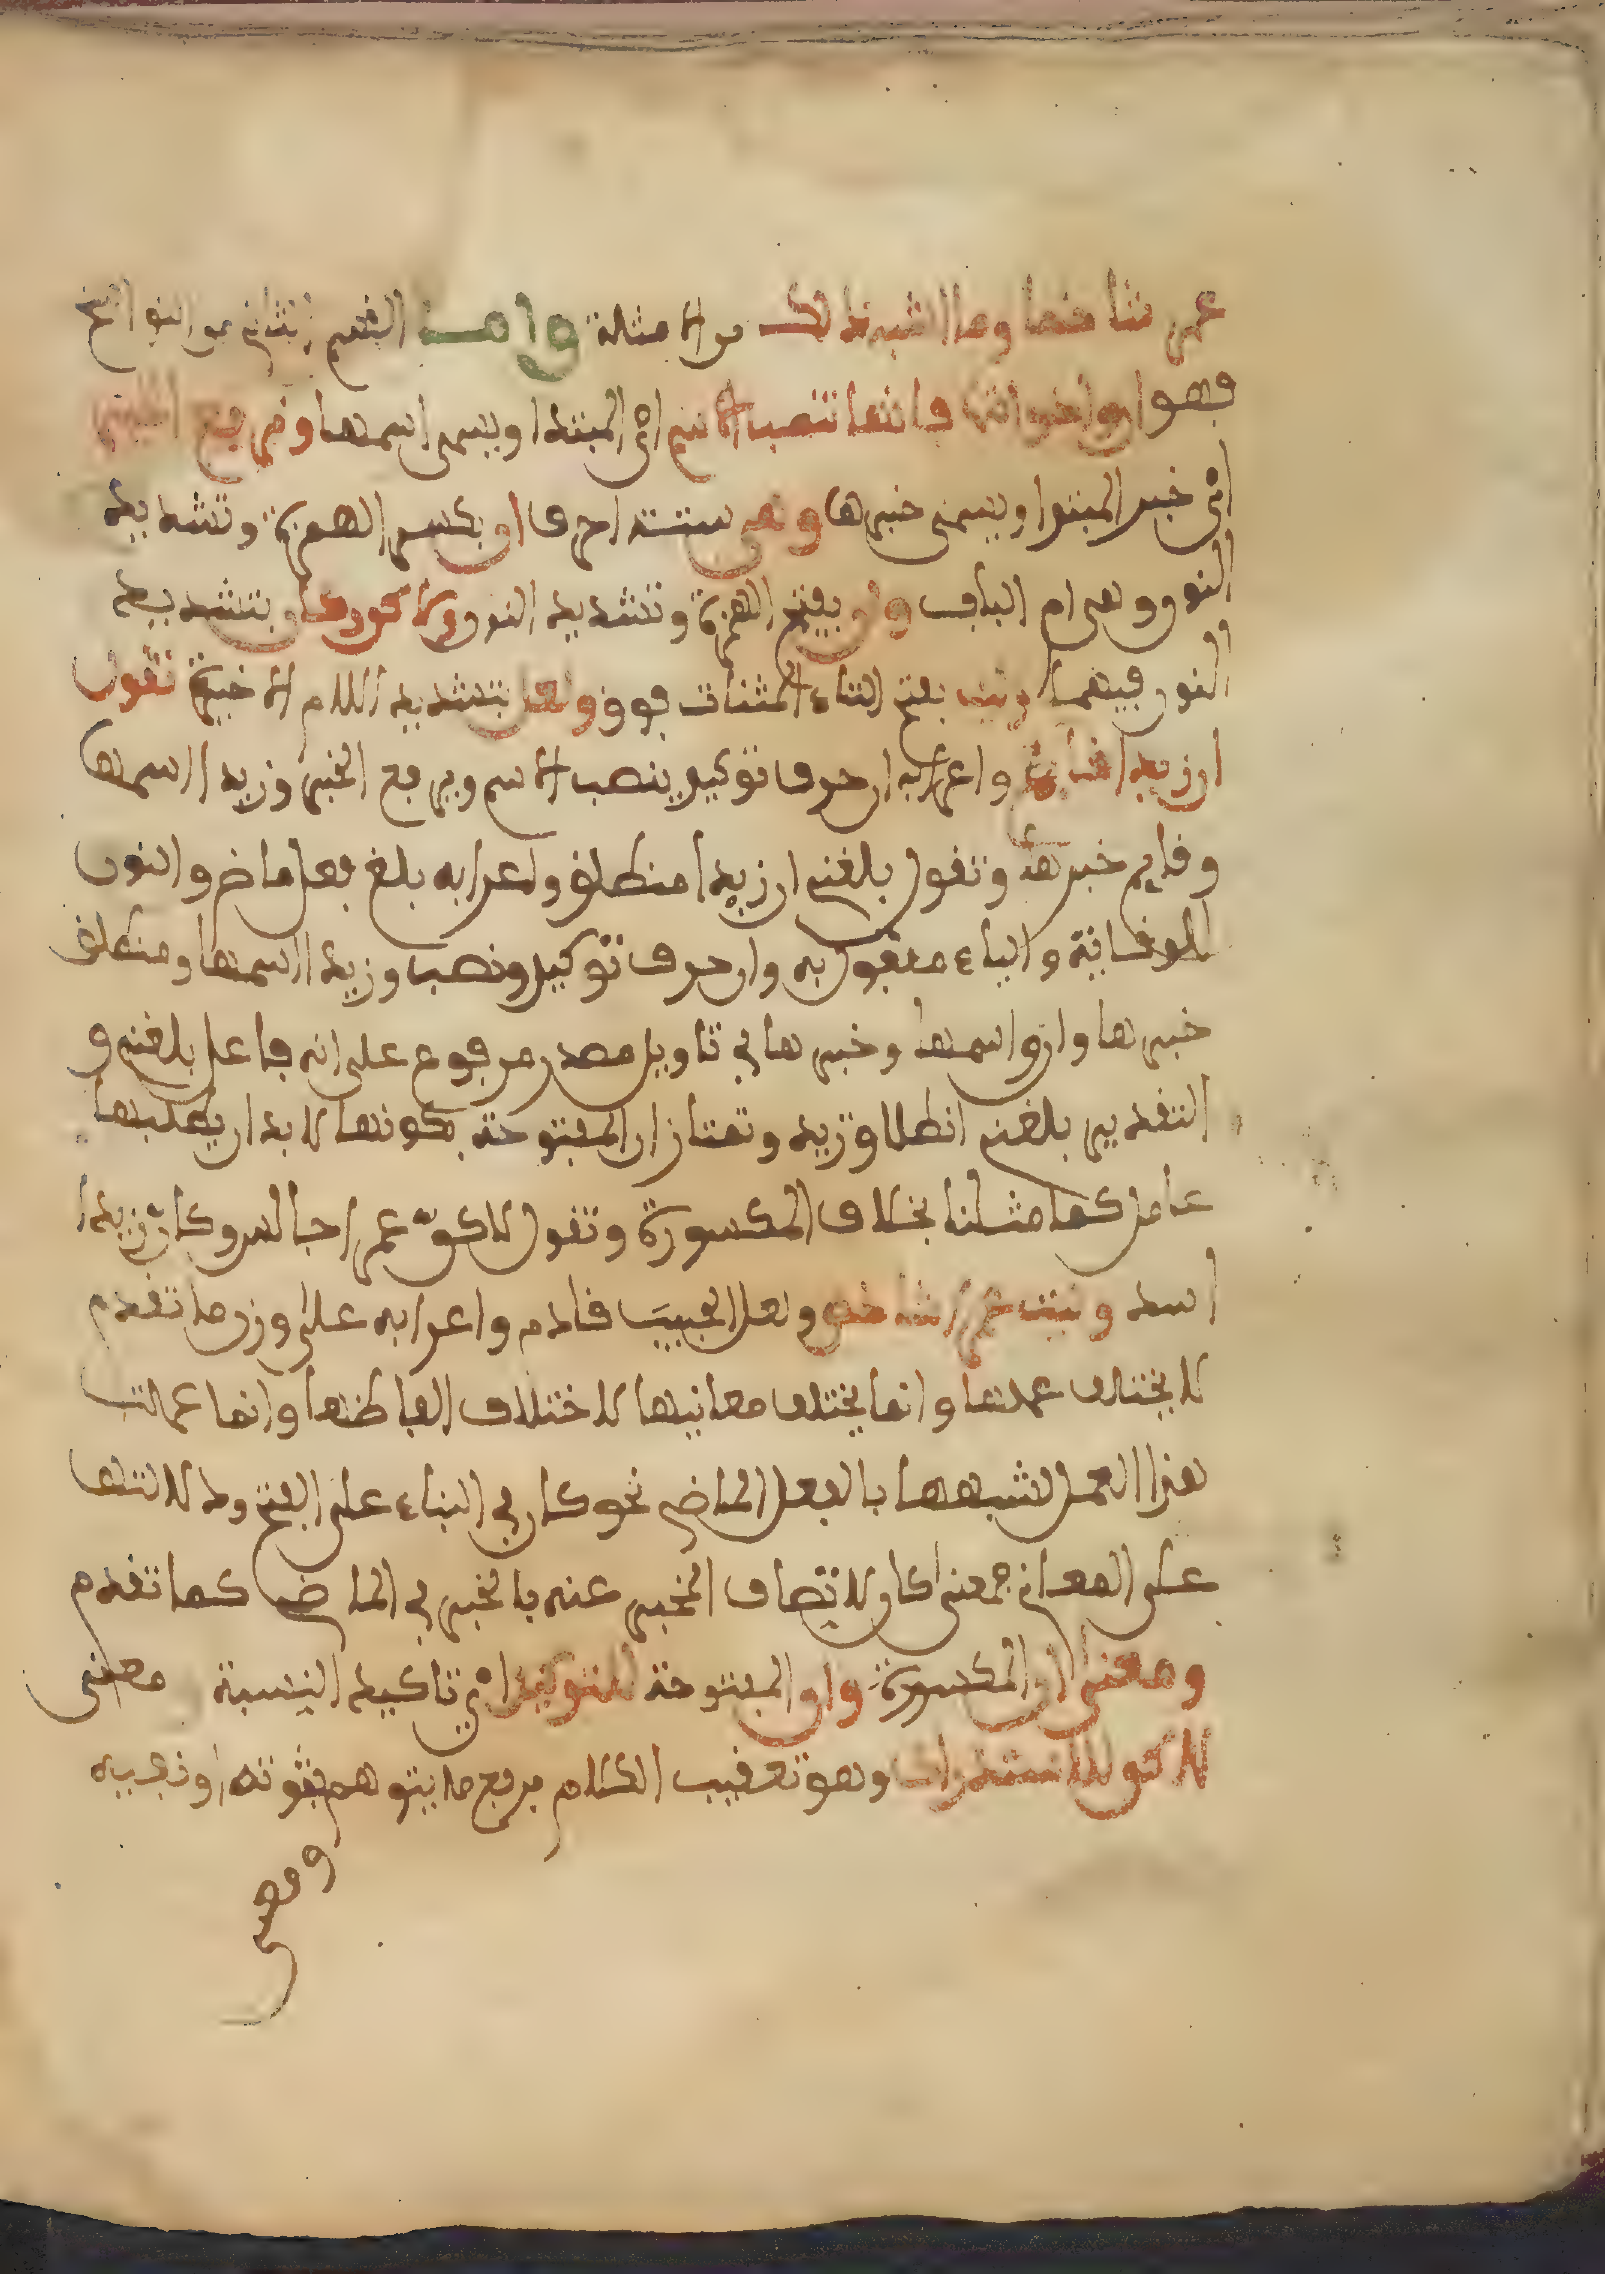 عمرو شاخصا وما اشبه ذلك من الامثلة واما القسم الثاني من النواسخ
فهو ان واخواتها فانها تنصب الاسم اي المبتدا ويسمى اسمها وترفع الخبر
اي خبر المبتدا ويسمى خبرها وهي ستة احرف ان بكسر الهمزة وتشديد
النون وهي ام الباب وان بفتح الهمزة وتشديد النون ولاكن وكان بتشديد
النون فيهما وليت بفتح التاء المثنات فوق ولعل بتشديد اللام الاخيرة تقول
ان زيدا قايم واعرابه ان حرف توكيد ينصب الاسم ويرفع الخبر وزيدا اسمها
وقايم خبرها وتقول بلغني ان زيدا منطلق واعرابه بلغ فعل ماض والنون
للوقاية والياء مفعول به وان حرف توكيد ونصب وزيدا اسمها ومنطلق
خبرها وان واسمها وخبرها في تاويل مصدر مرفوع على انه فاعل بلغني و
التقدير بلغني انطلاق زيد وتمتاز ان المفتوحة بكونها لا بد ان يطلبها
عامل كما مثلنا بخلاف المكسورة وتقول لاكن عمرا جالس وكان زيدا
اسد وليت عمرا شاخص ولعل الحبيب قادم واعرابه على وزن ما تقدم
لا يختلف عملها وانما يختلف معانيها لاختلاف الفاظها وانما عملت
هذا العمل لشبهها بالفعل الماضي نحو كان في البناء على الفتح ودلالتها
على المعاني فمعنى كان لاتصاف المخبر عنه بالخبر في الماضي كما تقدم
ومعنى ان المكسورة وان المفتوحة للتوكيد اي تاكيد النسبة ومعنى
لاكن للاستدراك وهو تعقيب الكلام برفع ما يتوهم ثبوته او نفيه
ومعنى